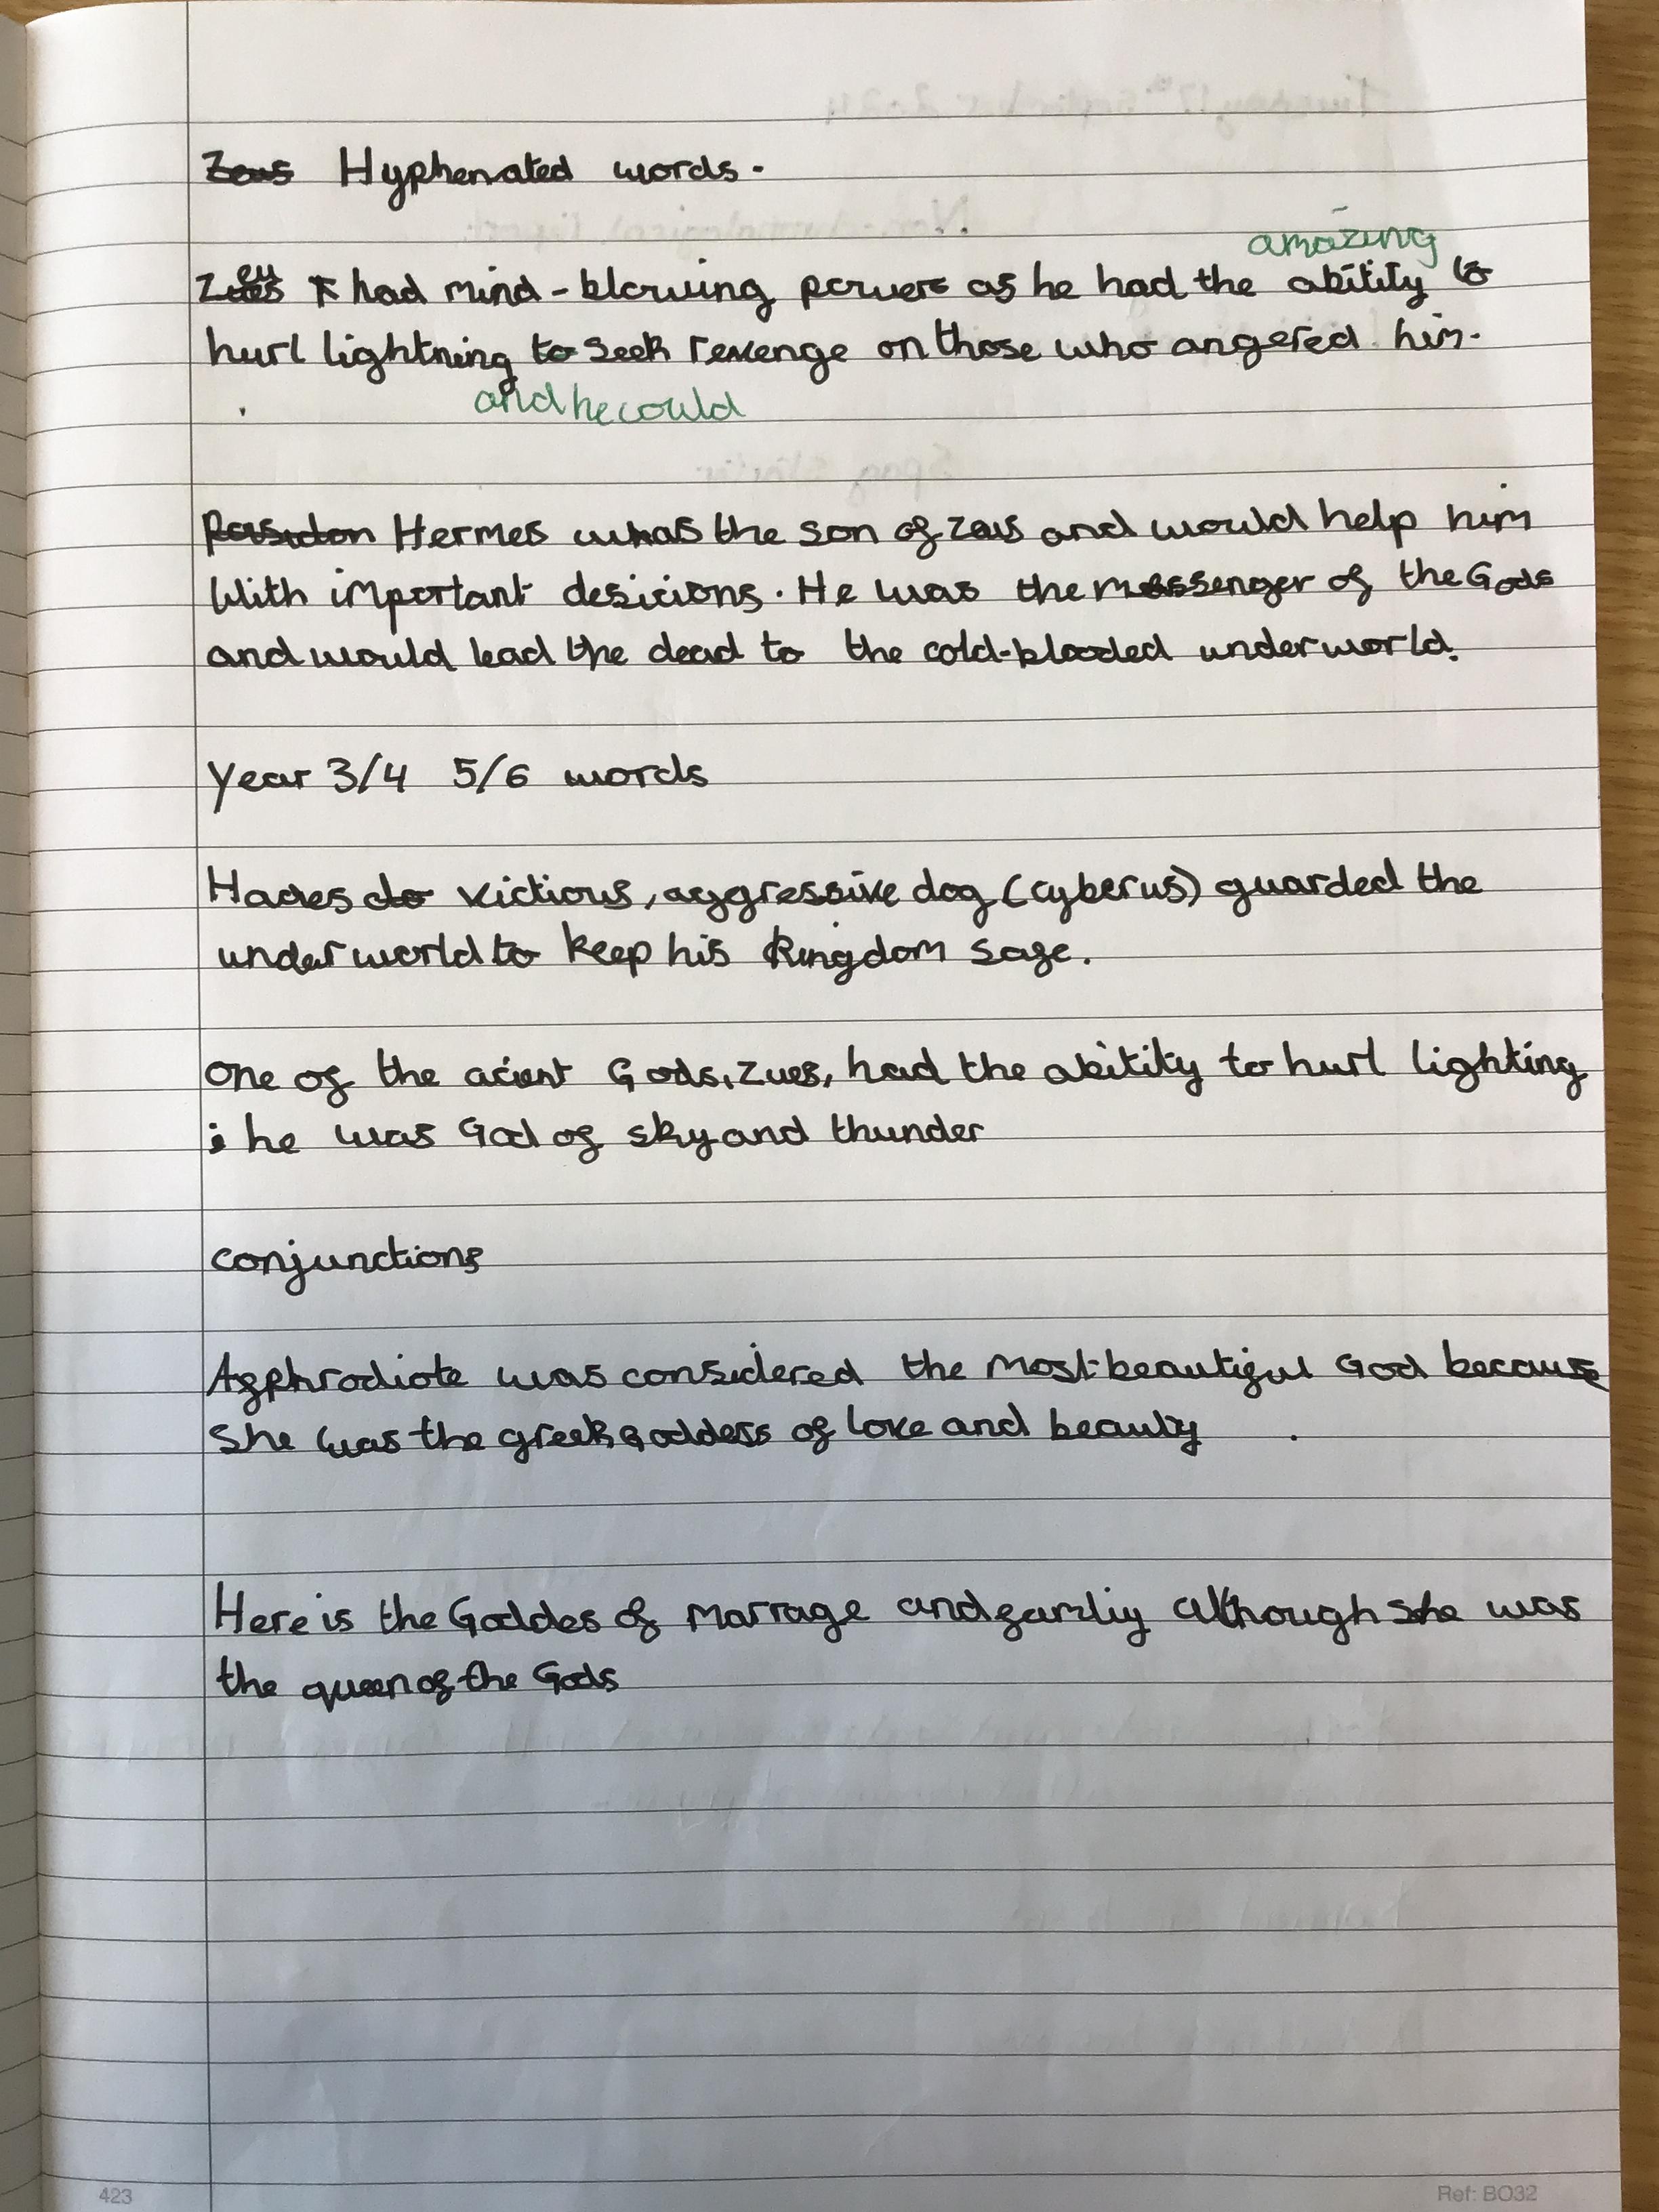 Zeus Hyphenated words.
amazing
Zeus had mind-blowing powers as he had the ability to
hurl lightning to seek revenge on those who angered him.
and he could
Hermes whas the son of Zeus and would help him
With important desicions. He was the messenger of the Gods
and would lead the dead to the cold-blooded underworld.
Year 3/4 5/6 words
Hades do victious, aggressive dog (cyberus) guarded the
underworld to keep his Kingdom safe.
One of the acient Gods, Zues, had the abitity to hurl lighting
; he was God of sky and thunder
conjunctions
Afphrodiote was considered the most beautiful God because
She was the greek Goddess of love and beauty .
Here is the Goddes of Marrage and famliy although She was
the queen of the Gods
423
Ref: BO32